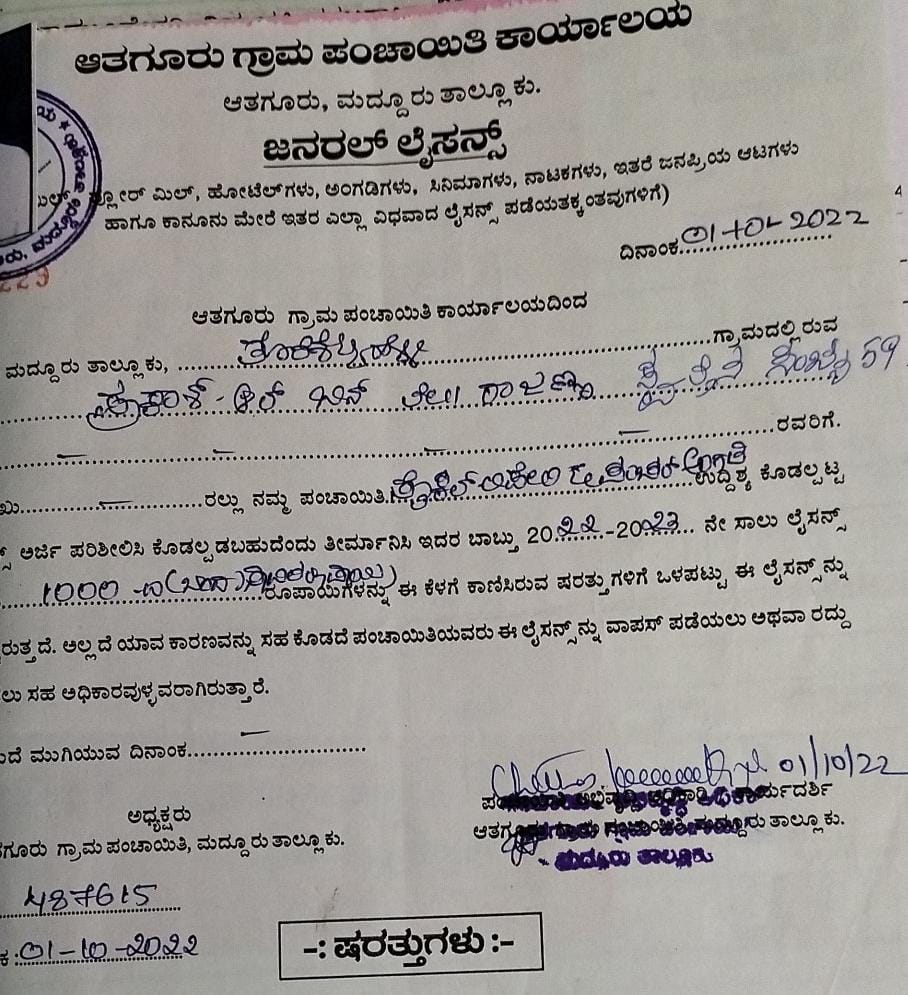 ಆತಗೂರು ಗ್ರಾಮ ಪಂಚಾಯಿತಿ ಕಾರ್ಯಾಲಯ
ಆತಗೂರು, ಮದ್ದೂರು ತಾಲ್ಲೂಕು.
ಜನರಲ್ ಲೈಸನ್ಸ್
ಫ್ಲೋರ್ ಮಿಲ್, ಹೋಟೆಲ್‌ಗಳು, ಅಂಗಡಿಗಳು, ಸಿನಿಮಾಗಳು, ನಾಟಕಗಳು, ಇತರೆ ಜನಪ್ರಿಯ ಆಟಗಳು
ಹಾಗೂ ಕಾನೂನು ಮೇರೆ ಇತರ ಎಲ್ಲಾ ವಿಧವಾದ ಲೈಸನ್ಸ್ ಪಡೆಯತಕ್ಕಂತವುಗಳಿಗೆ)
ದಿನಾಂಕ 01-10-2022
229
ಆತಗೂರು ಗ್ರಾಮ ಪಂಚಾಯಿತಿ ಕಾರ್ಯಾಲಯದಿಂದ
ಮದ್ದೂರು ತಾಲ್ಲೂಕು, ಗ್ರಾಮದಲ್ಲಿರುವ
ಪ್ರಕಾಶ್-ಆರ್ ಬಿನ್ ಲೇ॥ ರಾಜಣ್ಣ 59
ರವರಿಗೆ.
ರಲ್ಲು ನಮ್ಮ ಪಂಚಾಯಿತಿ ಉದ್ದಿಶ್ಯ ಕೊಡಲ್ಪಟ್ಟ
ಅರ್ಜಿ ಪರಿಶೀಲಿಸಿ ಕೊಡಲ್ಪಡಬಹುದೆಂದು ತೀರ್ಮಾನಿಸಿ ಇದರ ಬಾಬ್ತು 2022-2023 ನೇ ಸಾಲು ಲೈಸನ್ಸ್
1000 ರೂಪಾಯಿಗಳನ್ನು ಈ ಕೆಳಗೆ ಕಾಣಿಸಿರುವ ಷರತ್ತುಗಳಿಗೆ ಒಳಪಟ್ಟು ಈ ಲೈಸನ್ಸ್‌ನ್ನು
ರುತ್ತದೆ. ಅಲ್ಲದೆ ಯಾವ ಕಾರಣವನ್ನು ಸಹ ಕೊಡದೆ ಪಂಚಾಯಿತಿಯವರು ಈ ಲೈಸನ್ಸ್‌ನ್ನು ವಾಪಸ್ ಪಡೆಯಲು ಅಥವಾ ರದ್ದು
ಲು ಸಹ ಅಧಿಕಾರವುಳ್ಳವರಾಗಿರುತ್ತಾರೆ.
ಮುಗಿಯುವ ದಿನಾಂಕ
01/10/22
ಕಾರ್ಯದರ್ಶಿ
ಅಧ್ಯಕ್ಷರು
ಮದ್ದೂರು ತಾಲ್ಲೂಕು.
ಗೂರು ಗ್ರಾಮ ಪಂಚಾಯಿತಿ, ಮದ್ದೂರು ತಾಲ್ಲೂಕು.
ಮದ್ದೂರು ತಾಲ್ಲೂಕು
487615
ಕ: 01-10-2022
-: ಷರತ್ತುಗಳು :-